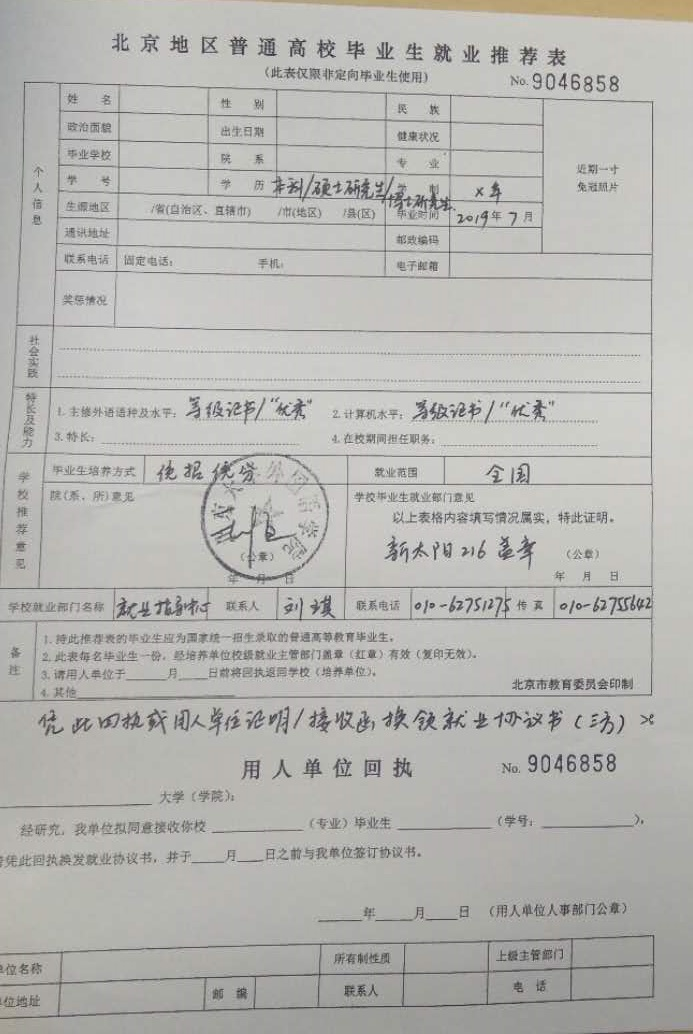 北京地区普通高校毕业生就业推荐表
(此表仅限非定向毕业生使用)
No. 9046858
个人信息
姓 名 性 别 民 族
近期一寸
免冠照片
政治面貌 出生日期 健康状况
毕业学校 院 系 专 业
学 号 学 历 本科/硕士研究生/博士研究生 学 制 X年
生源地区 /省(自治区、直辖市) /市(地区) /县(区) 毕业时间 2019年7月
通讯地址 邮政编码
联系电话 固定电话: 手机: 电子邮箱
奖惩情况
社会实践
特长及能力
1.主修外语语种及水平: 等级证书/“优秀” 2.计算机水平: 等级证书/“优秀”
3.特长: 4.在校期间担任职务:
学校推荐意见
毕业生培养方式 统招统分 就业范围 全国
院(系、所)意见 学校毕业生就业部门意见
以上表格内容填写情况属实，特此证明。
新太阳216盖章 (公章)
(公章)
年 月 日 年 月 日
学校就业部门名称 就业指导中心 联系人 刘琪 联系电话 010-62751275 传真 010-62755642
备注
1.持此推荐表的毕业生应为国家统一招生录取的普通高等教育毕业生。
2.此表每名毕业生一份，经培养单位校级就业主管部门盖章(红章)有效(复印无效)。
3.请用人单位于 月 日前将回执返回学校(培养单位)。
4.其他
北京市教育委员会印制
凭此回执或用人单位证明/接收函换领就业协议书(三方)
用人单位回执
No. 9046858
大学(学院):
经研究，我单位拟同意接收你校 (专业)毕业生 (学号: ),
凭此回执换发就业协议书，并于 月 日之前与我单位签订协议书。
年 月 日 (用人单位人事部门公章)
单位名称 所有制性质 上级主管部门
单位地址 邮 编 联系人 电 话